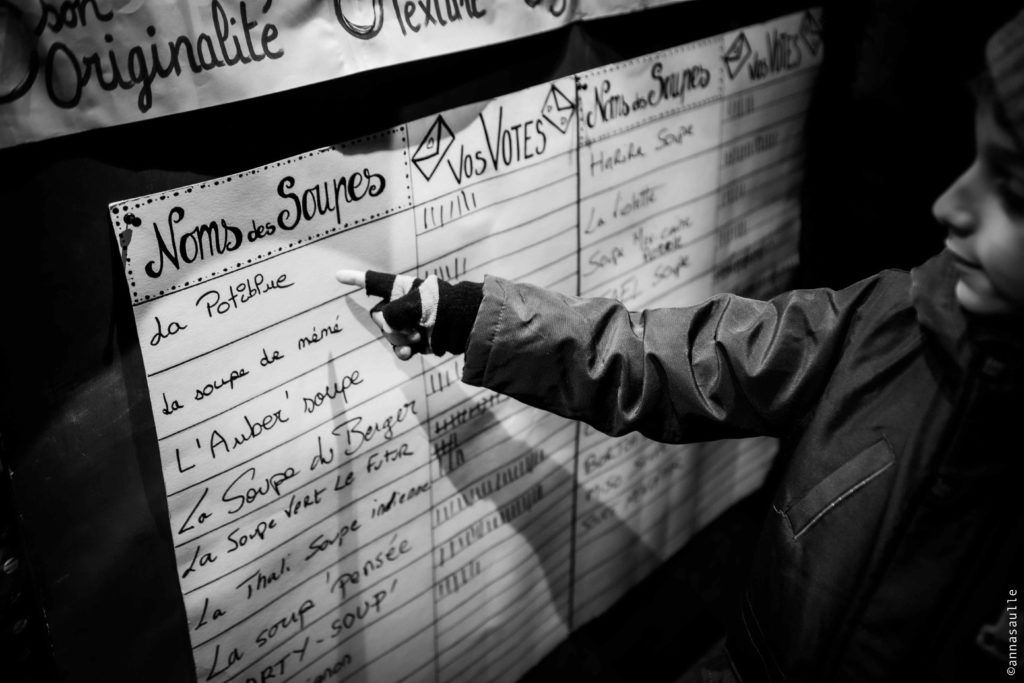 son
Originalité
Texture
Noms des Soupes
Vos Votes
La Potiblue
La soupe de mémé
L'Auber' soupe
La Soupe du Berger
La Soupe Vert Le Futur
La Thali Soupe indienne
La soup 'pensée
ARTY-SOUP'
Noms des Soupes
Vos Votes
Harira Soupe
La Violette
Soupe
Soupe
©annasaulle